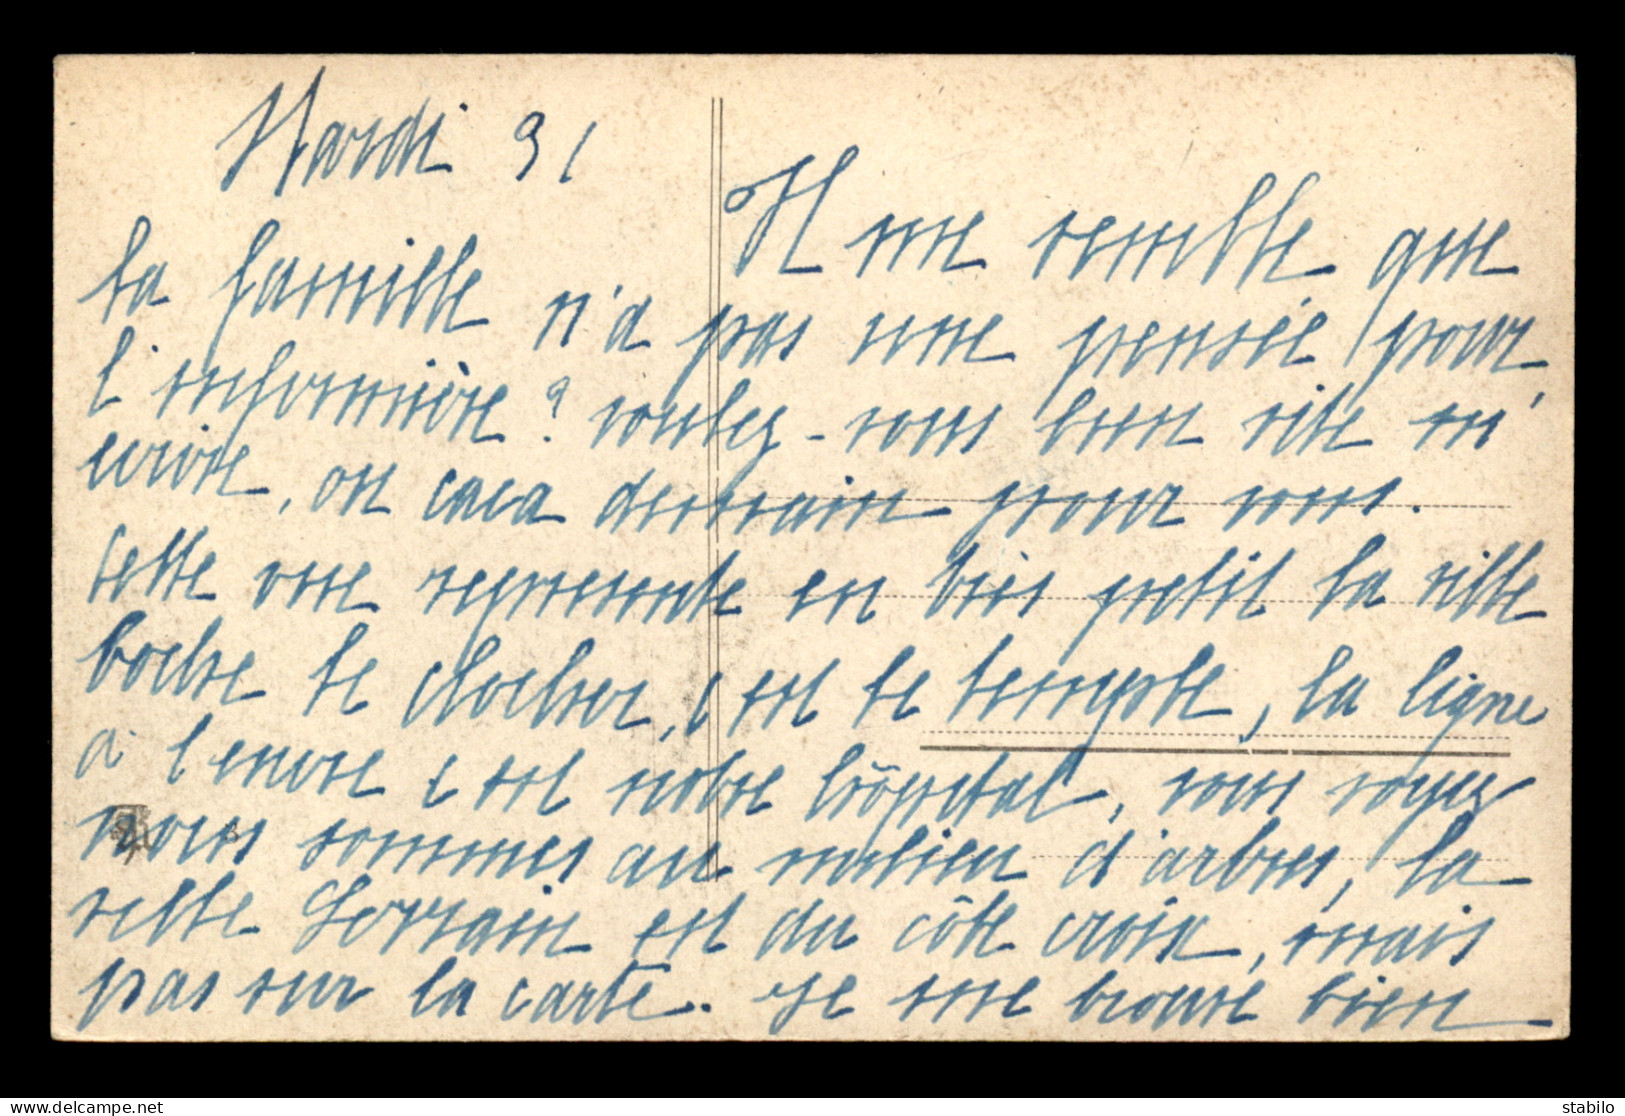 Mardi 31
Il me semble que
la famille n'a pas une pensée pour
l'infirmière? voulez-vous bien vite m'
ecrire, on caca demain pour vous.
Cette vue represente en très petit la ville
boche le clocher, c'est le temple, la ligne
à l'encre c'est notre hôpital, vous voyez
nous sommes au milieu d'arbres, la
ville Lorrain est du côté croix, mais
pas sur la carte. Je me trouve bien
stabilo